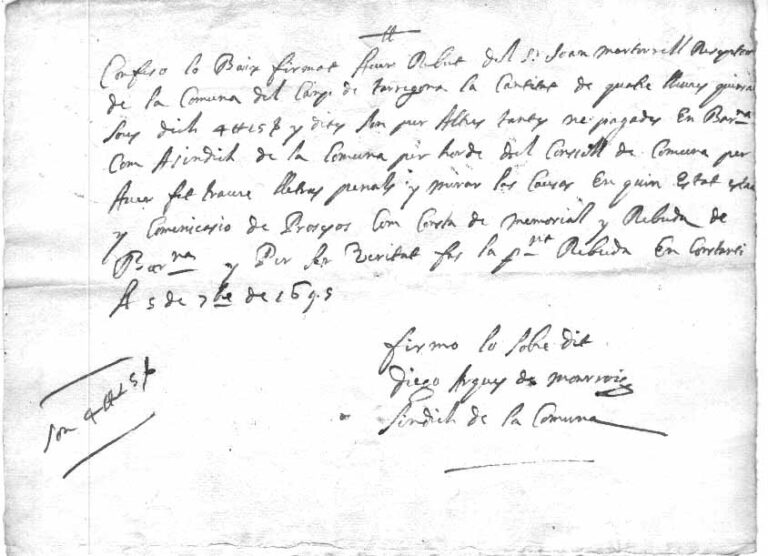 Confeso lo Baix firmat Aver Rebut del Sr Joan Martorell Reseptor
de la Comuna del Camp de Tarragona la Cantitat de quatre lliures quinse
sous dich 4 ₶ 15 ß y dites son per Altres tantes ne pagades En Barna
Com A sindich de la Comuna per horde del Consell de Comuna per
Aver fet traure lletras penals y mirar las Causas En quin Estat
y Comunicasio de Prosesos Com Consta de Memorial y Rebuda de
Barna y Per ser Veritat fas la pnt Rebuda En Constanti
A 5 de 7bre de 1695
firmo lo sobre dit
Diego
Sindich de la Comuna
son 4 ₶ 15 ß